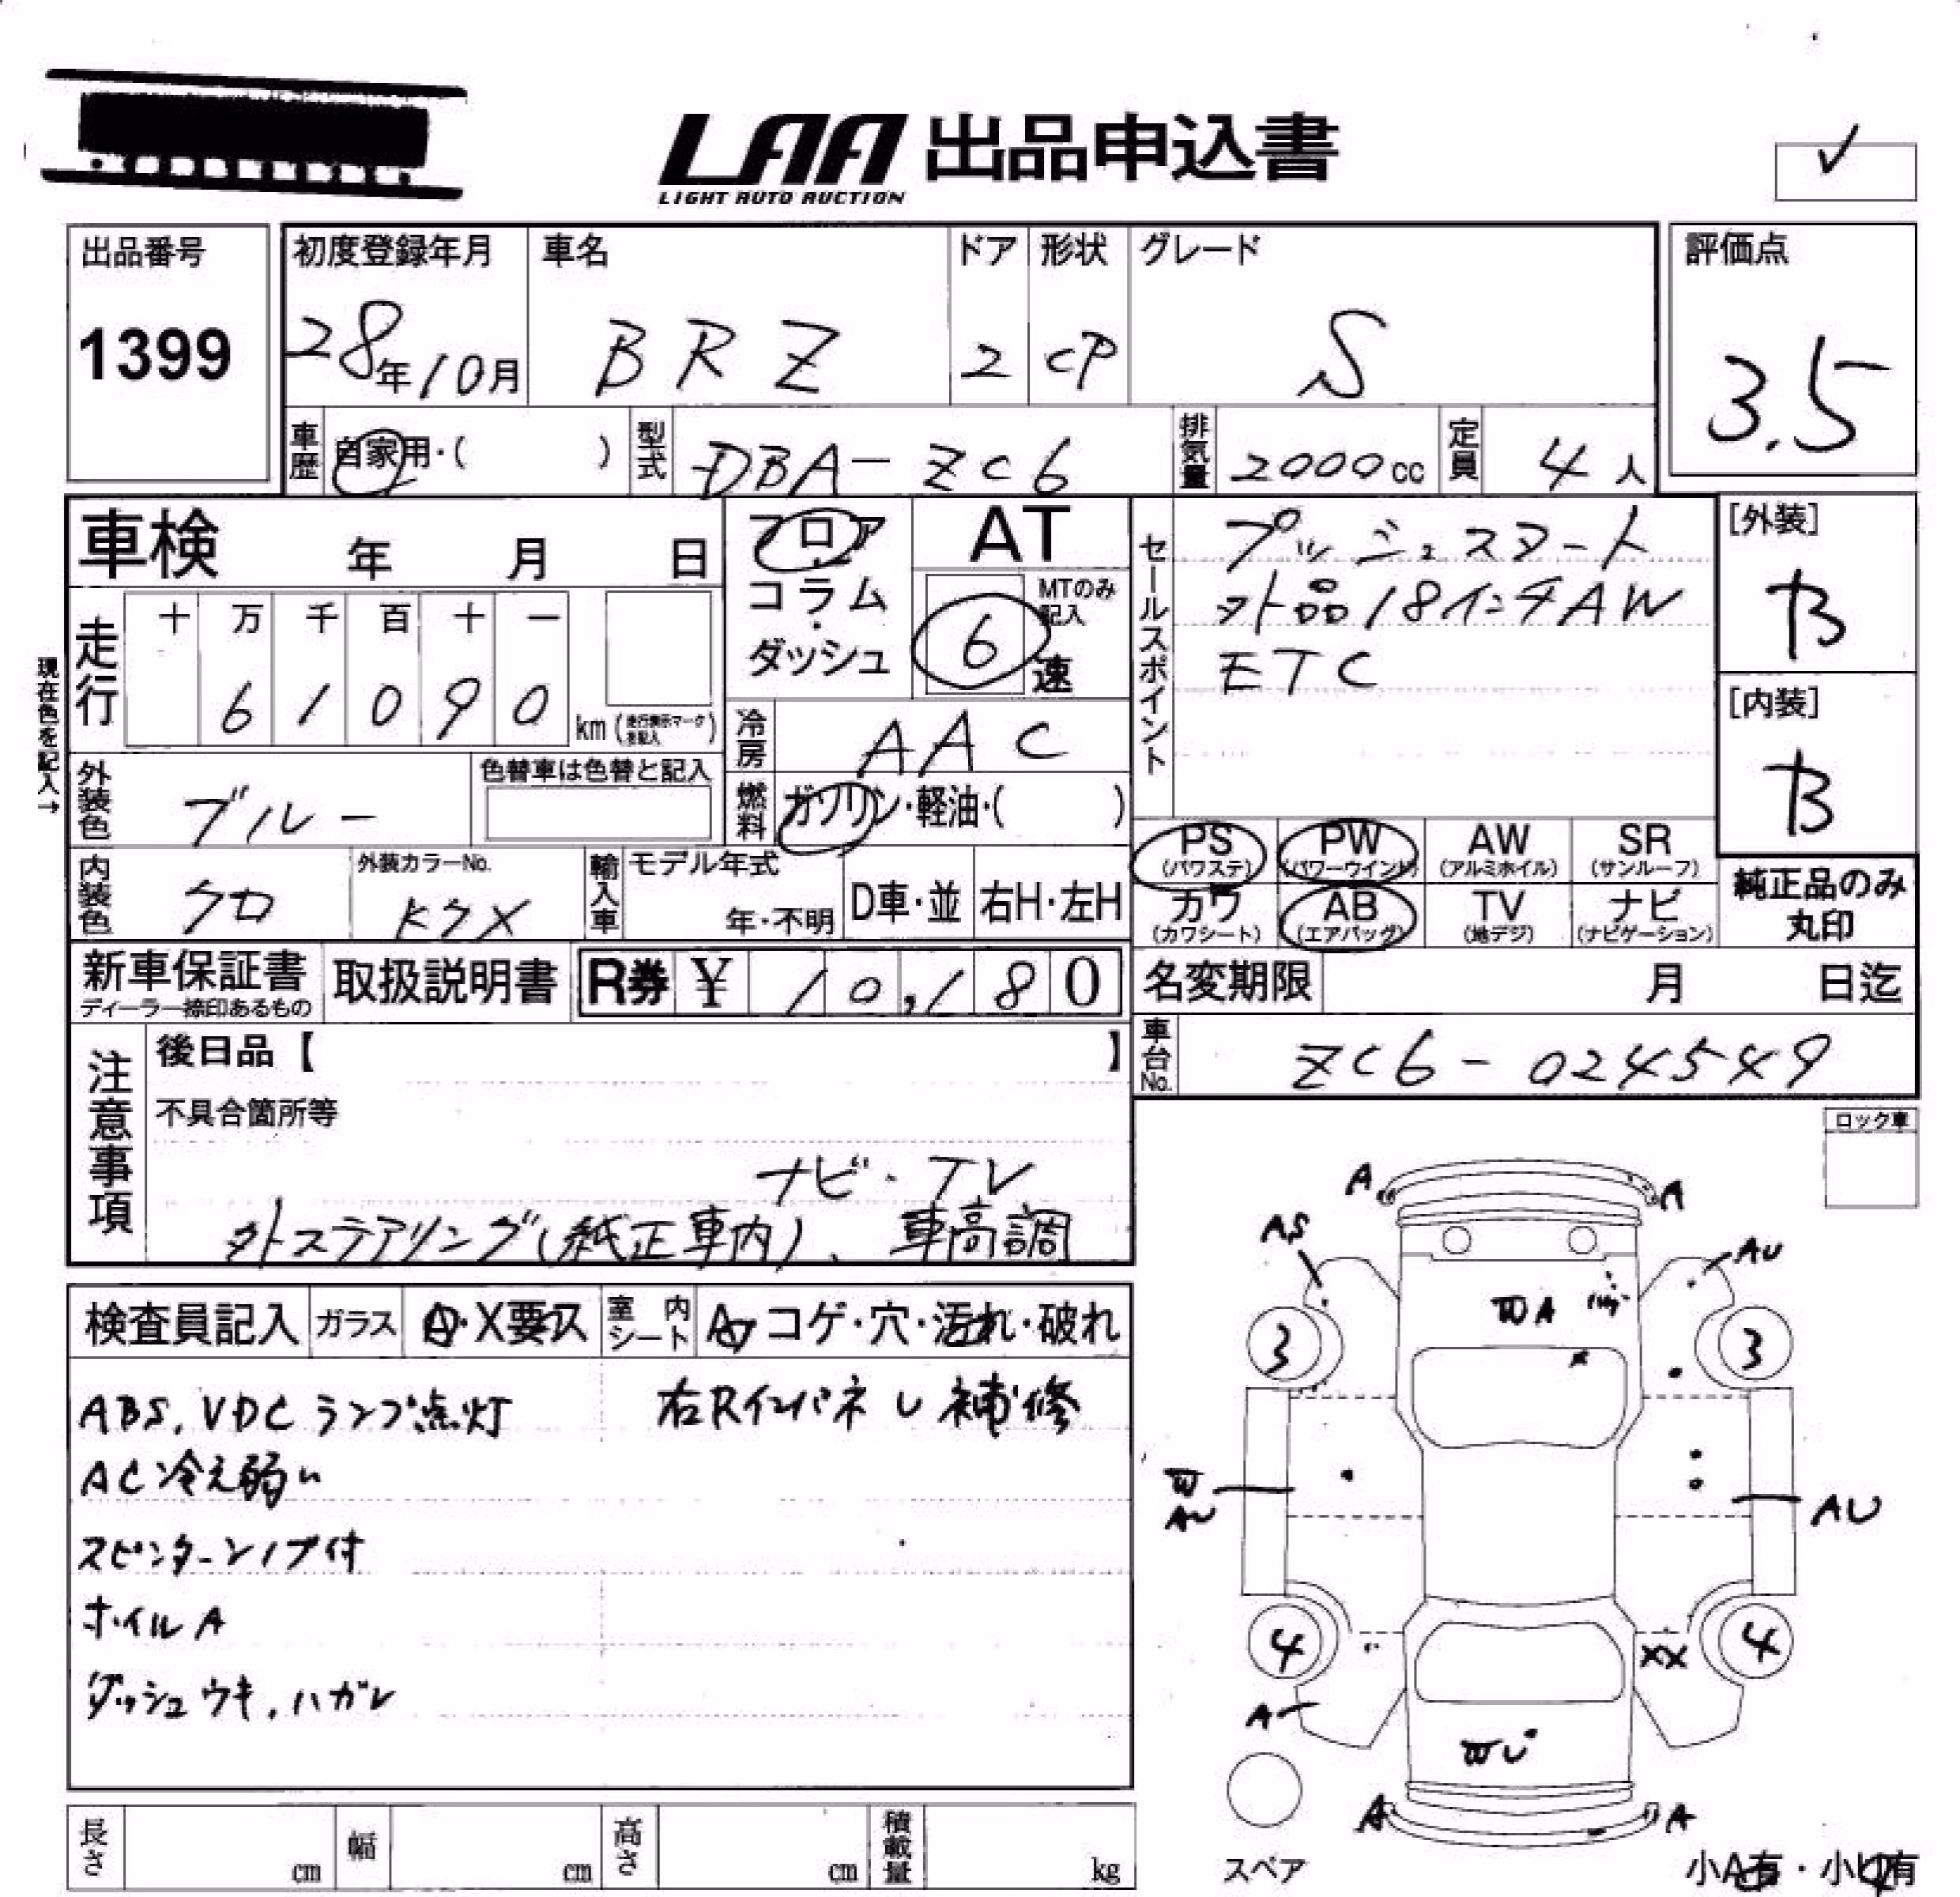 LAA 出品申込書
LIGHT AUTO AUCTION
✓
出品番号 初度登録年月 車名 ドア 形状 グレード 評価点
1399 28年10月 BRZ 2 CP S 3.5
車歴 自家用・( ) 型式 DBA-ZC6 排気量 2000cc 定員 4人
車検 年 月 日
フロア・コラム・ダッシュ
AT
MTのみ記入
6 速
セールスポイント
プッシュスタート
外品18インチAW
ETC
[外装]
B
[内装]
B
現在色を記入→
走行 十 万 千 百 十 一
6 1 0 9 0 km (走行表示マークを記入)
冷房 AAC
外装色 ブルー 色替車は色替と記入
燃料 ガソリン・軽油・( )
内装色 クロ 外装カラーNo. K7X
輸入車 モデル年式 年・不明 D車・並 右H・左H
PS (パワステ) PW (パワーウインド) AW (アルミホイル) SR (サンルーフ)
カワ (カワシート) AB (エアバッグ) TV (地デジ) ナビ (ナビゲーション)
純正品のみ丸印
新車保証書 ディーラー捺印あるもの 取扱説明書 R券 ¥ 10,180
名変期限 月 日迄
車台No. ZC6-024549
注意事項
後日品【 】
不具合箇所等
ナビ・TV
外ステアリング(純正車内)、車高調
ロック車
検査員記入 ガラス A・X要ス 室内シート A コゲ・穴・汚れ・破れ
ABS, VDCランプ点灯 右Rインパネル補修
AC冷え弱い
スピンターンノブ付
ホイルA
ダッシュウキ、ハガレ
A A
AS AU
A
3 3
AU AU
4 XX 4
A
U
A A
スペア
小A有・小U有
長さ cm 幅 cm 高さ cm 積載量 kg